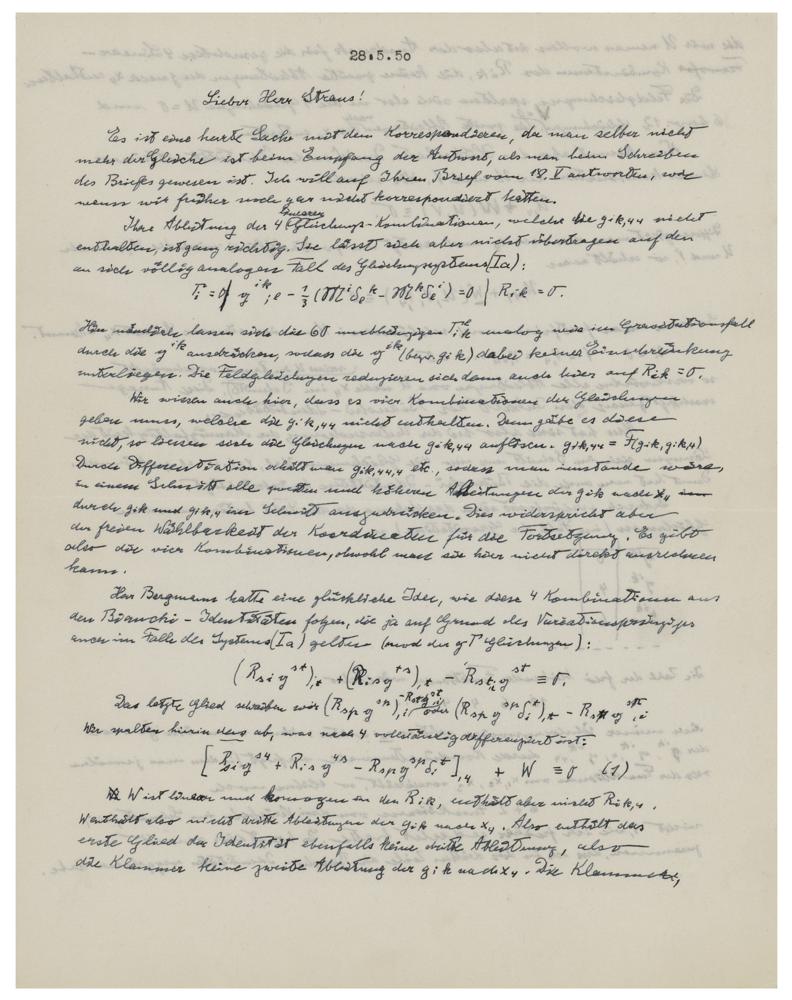 28.5.50
Lieber Herr Straus!
Es ist eine harte Sache mit dem Korrespondieren, da man selber nicht
mehr der Gleiche ist beim Empfang der Antwort, als man beim Schreiben
des Briefes gewesen ist. Ich will auf Ihren Brief vom 18. V antworten, wie
wenn wir früher noch gar nicht korrespondiert hätten.
Ihre Ableitung der 4 linearen Gleichungs-Kombinationen, welche die gik,44 nicht
enthalten, ist ganz richtig. Sie lässt sich aber nicht übertragen auf den
an sich völlig analogen Fall des Gleichungssystems (Ia):
Γi = 0 | g^ik;e − 1/3 (𝔐^i δe^k − 𝔐^k δe^i) = 0 | Rik = 0.
Hier nämlich lassen sich die 60 unabhängigen Γ analog wie im Gravitationsfall
durch die g^ik ausdrücken, sodass die g^ik (bezw. gik) dabei keiner Einschränkung
unterliegen. Die Feldgleichungen reduzieren sich dann auch hier auf Rik = 0.
Wir wissen auch hier, dass es vier Kombinationen der Gleichungen
geben muss, welche die gik,44 nicht enthalten. Denn gäbe es diese
nicht, so liessen sich die Gleichungen nach gik,44 auflösen. gik,44 = F(gik, gik,4)
Durch Differentiation erhält man gik,44,4 etc., sodass man imstande wäre,
in einem Schnitt alle zweiten und höheren Ableitungen der gik nach x4
durch gik und gik,4 im Schnitt auszudrücken. Dies widerspricht aber
der freien Wählbarkeit der Koordinaten für die Fortsetzung. Es gibt
also die vier Kombinationen, obwohl man sie hier nicht direkt ausrechnen
kann.
Herr Bergmann hatte eine glückliche Idee, wie diese 4 Kombinationen aus
den Bianchi-Identitäten folgen, die ja auf Grund des Variationsprinzips
auch im Falle des Systems (Ia) gelten (mod der gΓ Gleichungen):
(Rsi g^st),t + (Ris g^ts),t − Rst,i g^st ≡ 0.
Das letzte Glied schreiben wir (Rsp g^sp),i oder (Rsp g^sp δi^t),t − Rst g^st,i
Wir spalten hierin das ab, was nach 4 vollständig differenziert ist:
[Rsi g^s4 + Ris g^4s − Rsp g^sp δi^t],4 + W ≡ 0 (1)
W ist linear und homogen in den Rik, enthält aber nicht Rik,4.
W enthält also nicht dritte Ableitungen der gik nach x4. Also enthält das
erste Glied der Identität ebenfalls keine dritte Ableitung, also
die Klammer keine zweite Ableitung der gik nach x4. Die Klammern,